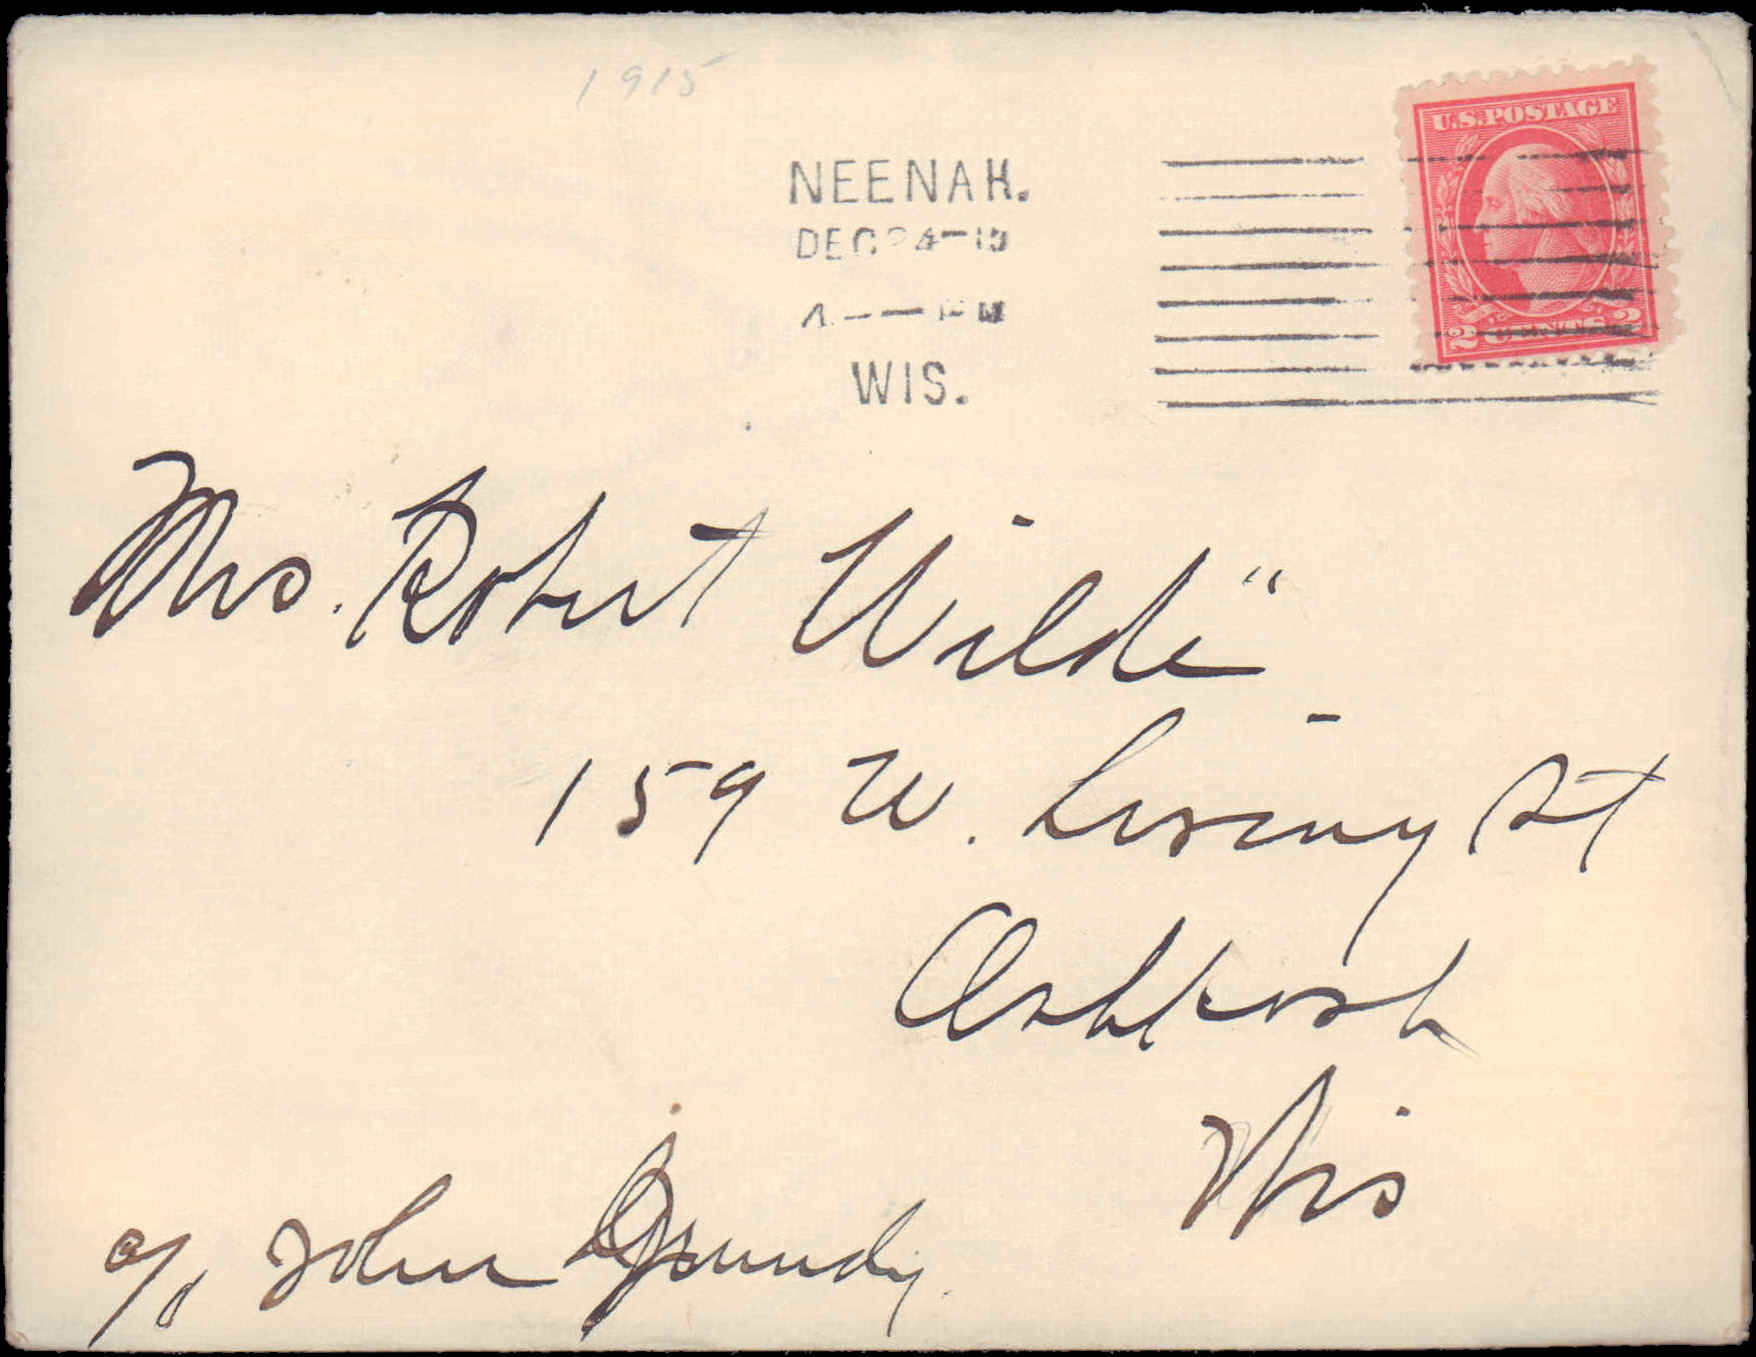 1915
U.S. POSTAGE
NEENAH.
DEC 24-15
4 — PM
WIS.
2 CENTS 2
Mrs. Robert Wilde
159 W. Irving St
Oshkosh
Wis
c/o John Grundy.